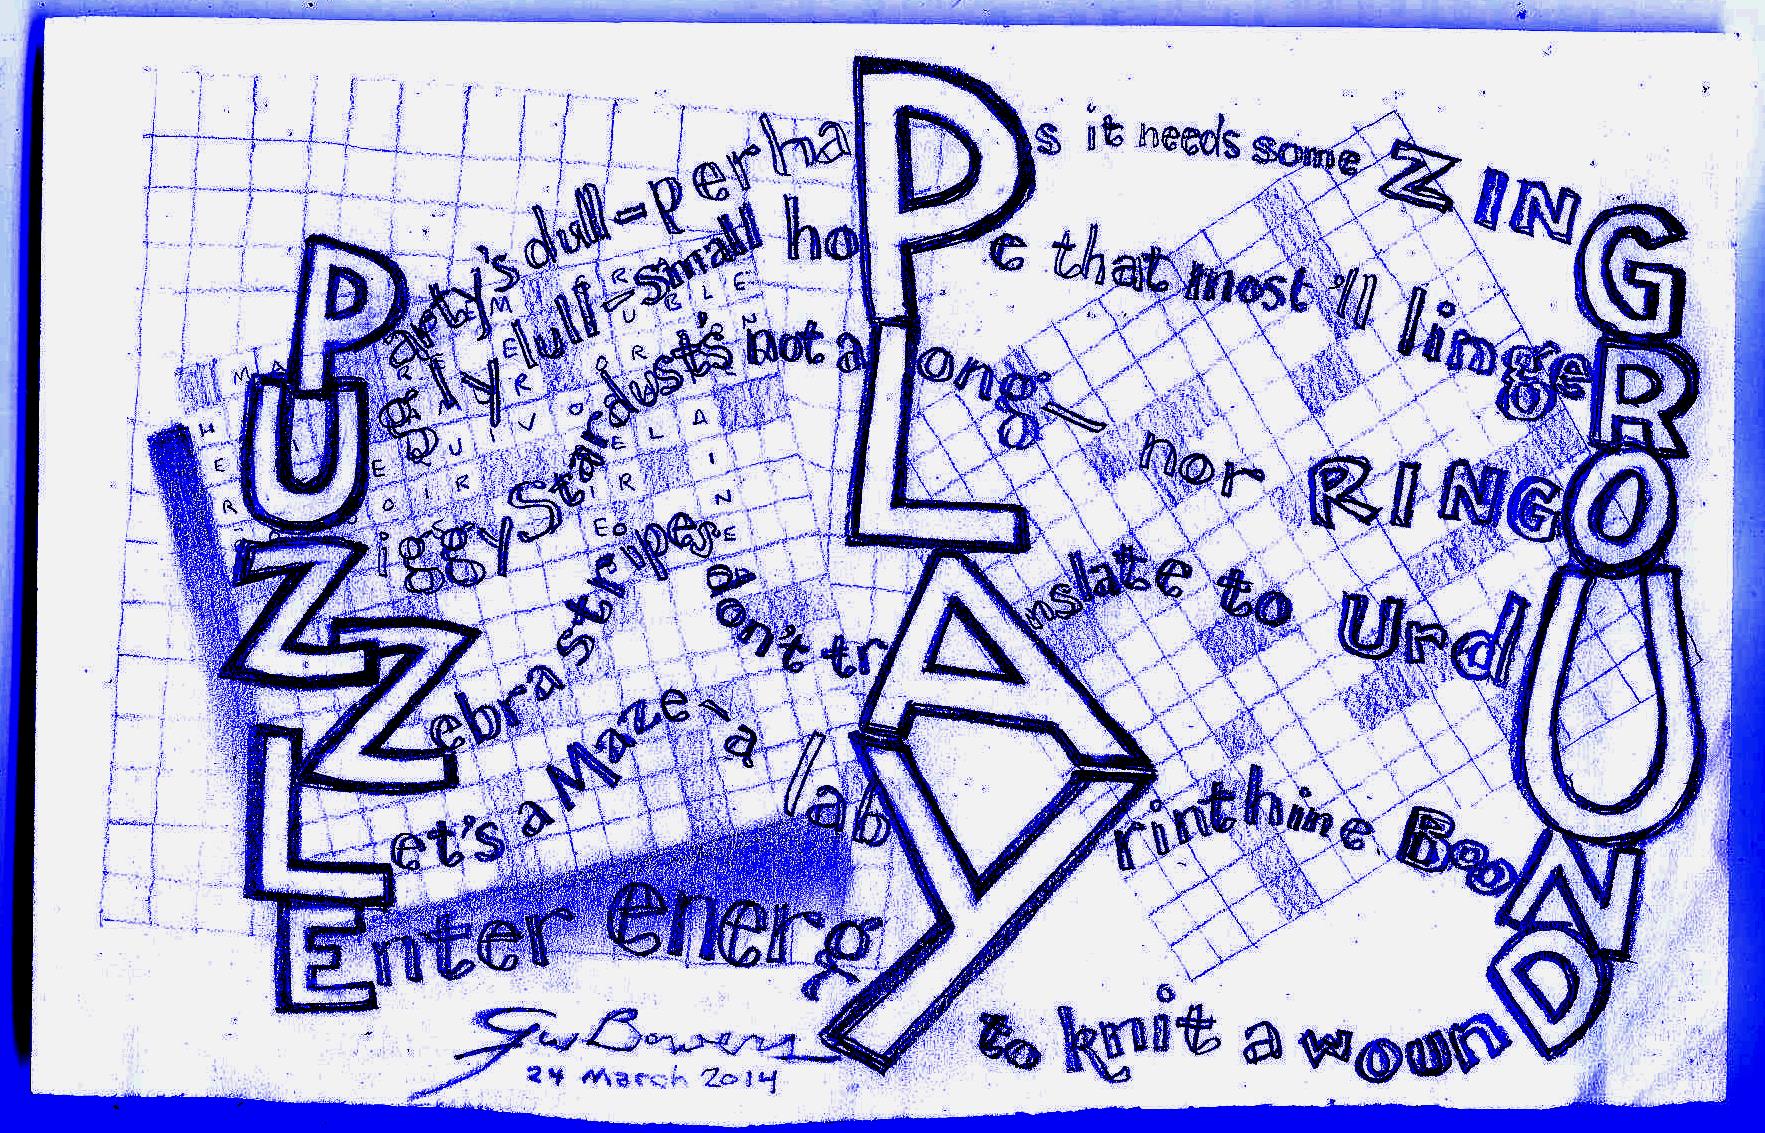 Party's dull-perhaPs it needs some ZING
Ugly lull-small hoPe that most'll lingeR
Ziggy Stardust's not aLong- nor RINGO
Zebra stripes don't trAnslate to UrdU
Let's a Maze-a labYrinthine BooN
Enter energY to knit a wounD
Bowers
24 March 2014